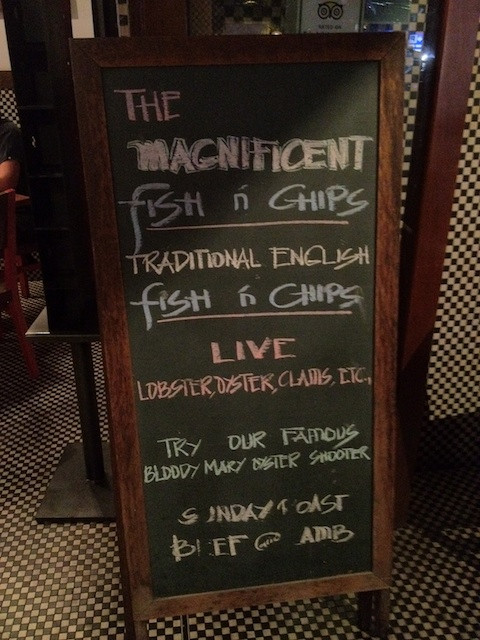 THE
MAGNIFICENT
fISH n' CHIPS
TRADITIONAL ENGLISH
fISH n' CHIPS
LIVE
LOBSTER, OYSTER, CLAMS, ETC.,
TRY OUR FAMOUS
BLOODY MARY OYSTER SHOOTER
SUNDAY ROAST
BEEF @ AMB